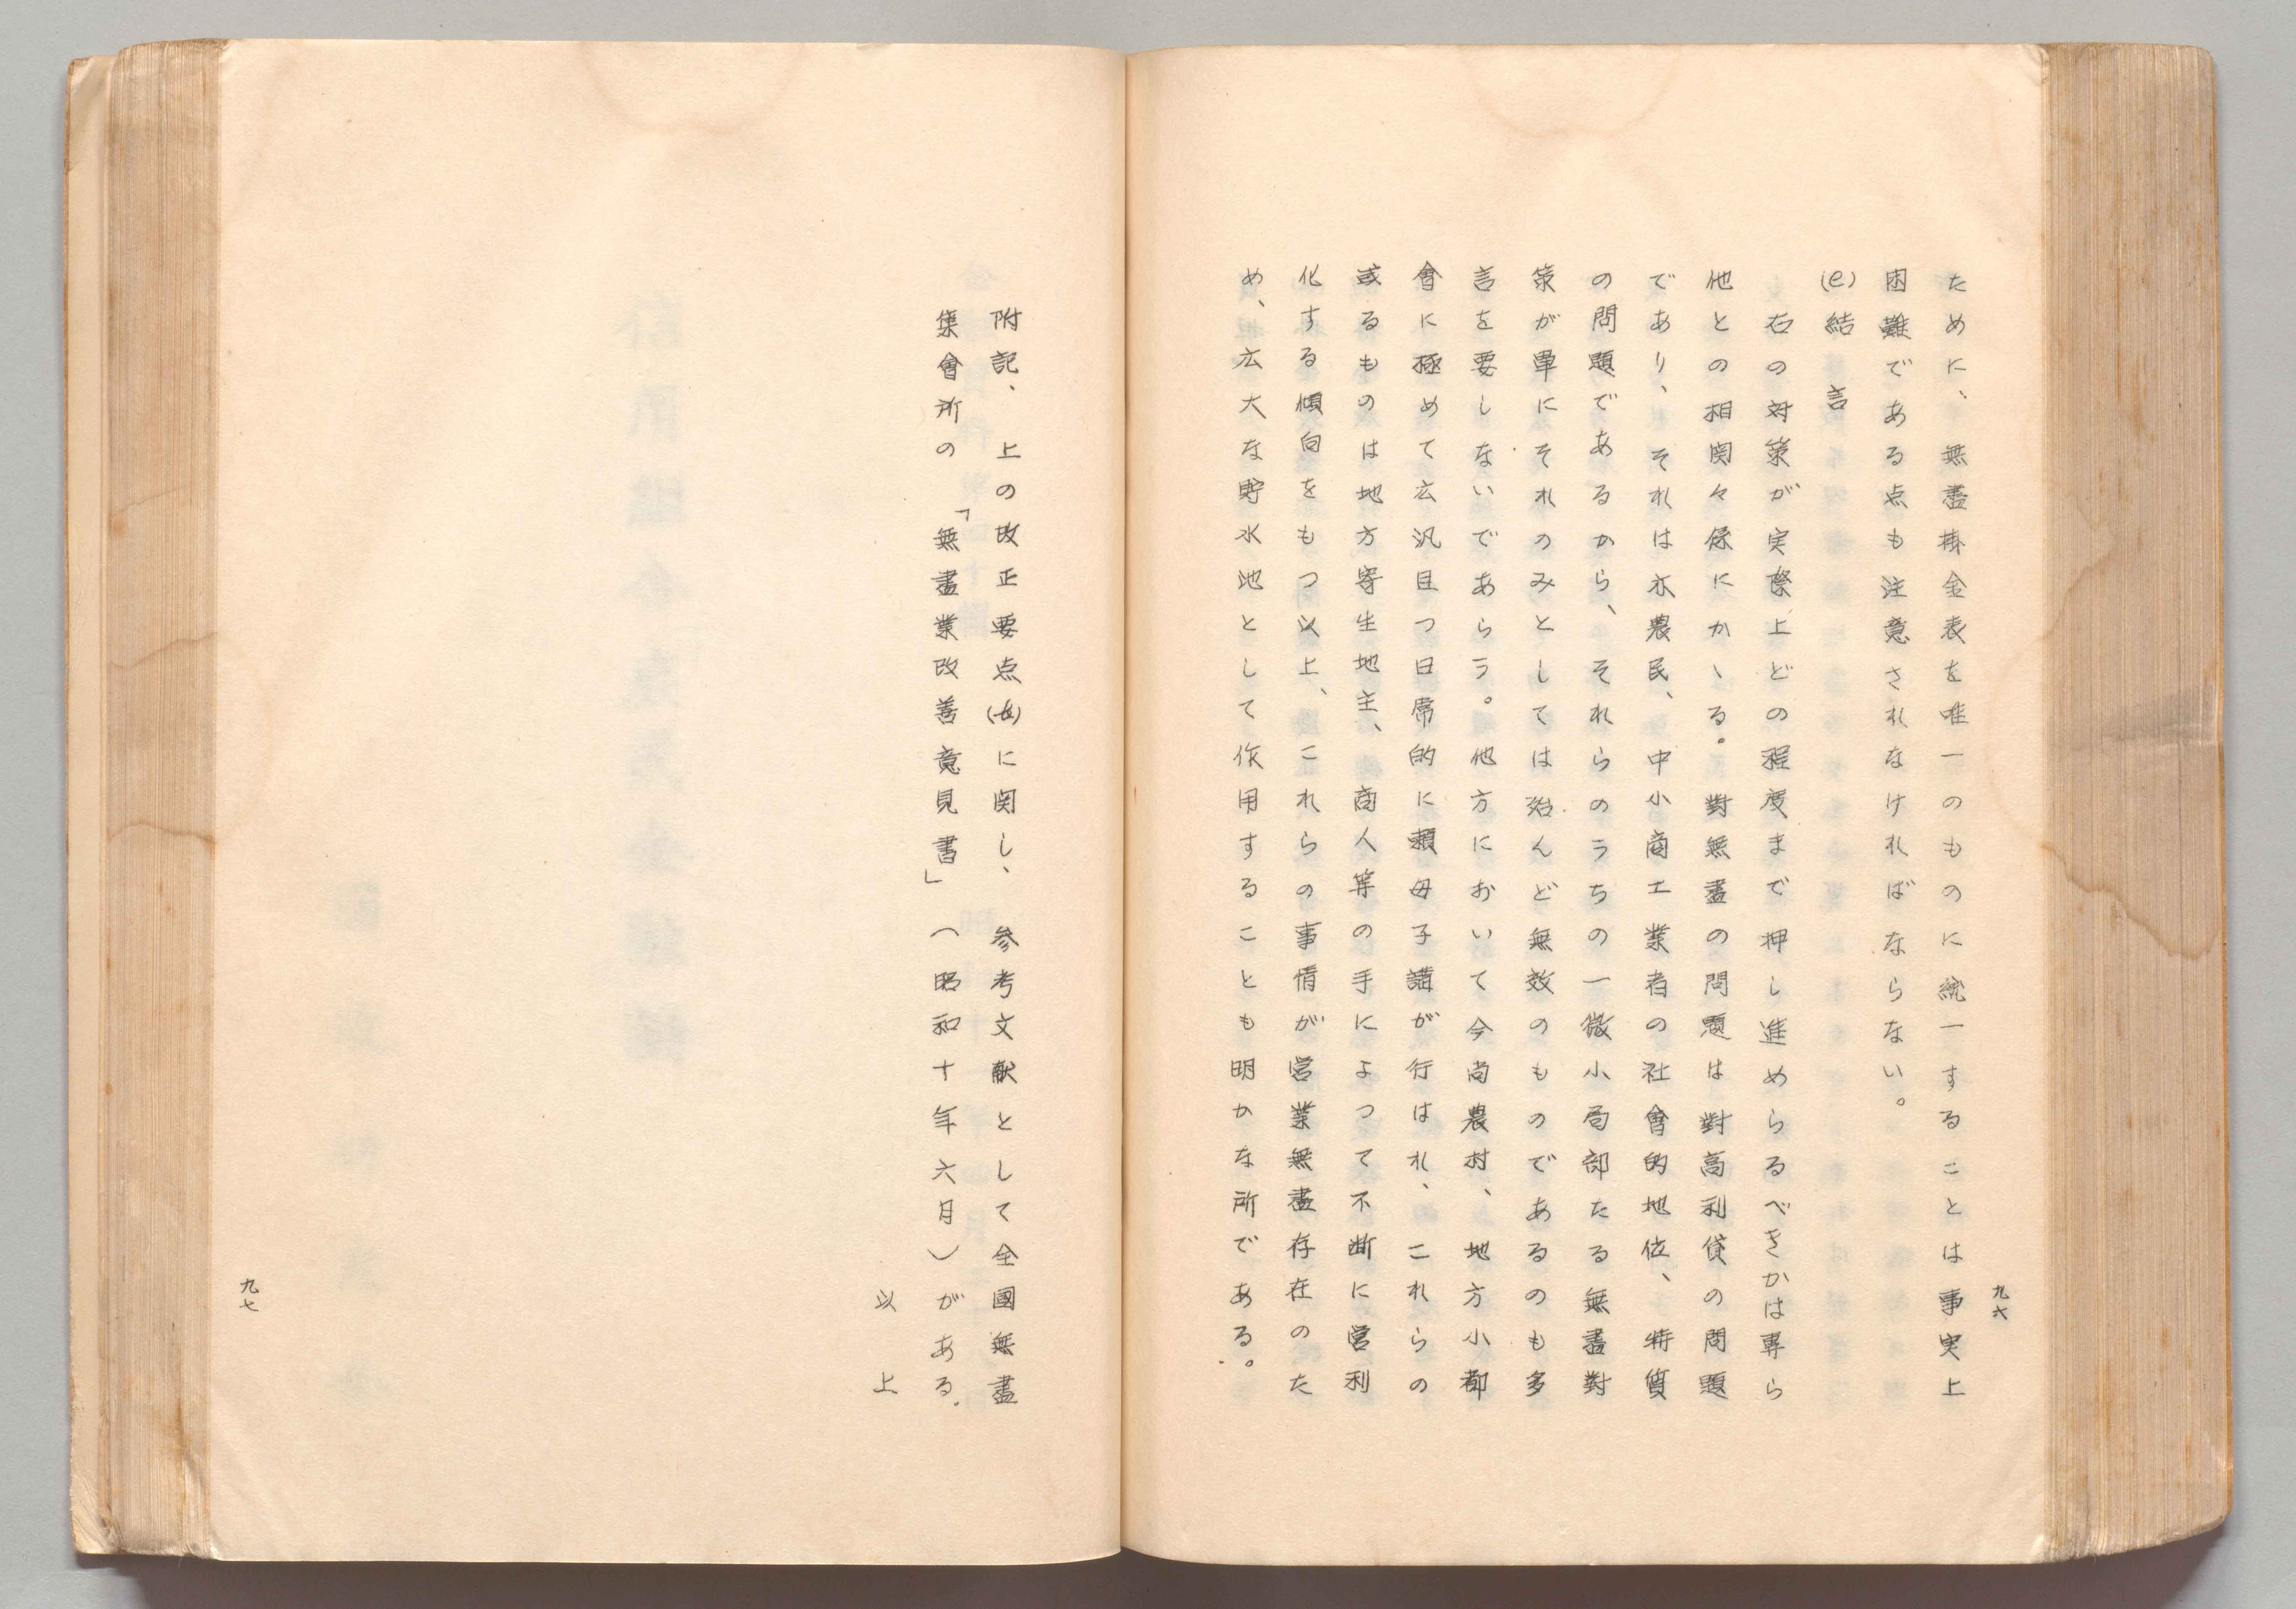 ために、無盡掛金表を唯一のものに統一することは事実上
困難である点も注意されなければならない。
(e)結言
右の対策が実際上どの程度まで押し進めらるべきかは専ら
他との相関々係にかゝる。對無盡の問題は對高利貸の問題
であり、それは亦農民、中小商工業者の社會的地位、特質
の問題であるから、それらのうちの一微小局部たる無盡對
策が單にそれのみとしては殆んど無效のものであるのも多
言を要しないであらう。他方において今尚農村、地方小都
會に極めて広汎且つ日常的に頼母子講が行はれ、これらの
或るものは地方寄生地主、商人等の手によつて不断に営利
化する傾向をもつ以上、これらの事情が営業無盡存在のた
め、広大な貯水池として作用することも明かな所である。
九六
附記、上の改正要点(七)に関し、参考文献として全國無盡
集會所の「無盡業改善意見書」(昭和十年六月)がある.
以上
九七